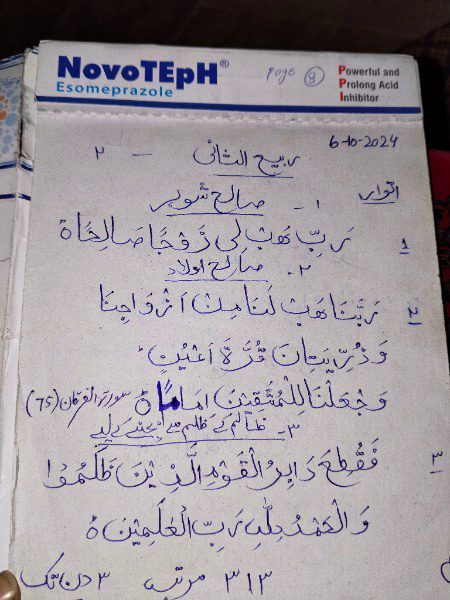 NovoTEpH®
Esomeprazole
Page 8
Powerful and
Prolong Acid
Inhibitor
6-10-2024
ربیع الثانی — ۲
اتوار
۱ - صالح شوہر
1 رَبِّ هَبْ لِی زَوْجًا صَالِحًاة
۲ - صالح اولاد
2 رَبَّنَا هَبْ لَنَا مِنْ اَزْوَاجِنَا
وَ ذُرِّیّٰتِنَا قُرَّةَ اَعْیُنٍ
وَ جْعَلْنَا لِلْمُتَّقِیْنَ اِمَامًا سورۃ الفرقان (75)
۳ - ظالم کے ظلم سے بچنے کے لیے
3 فَقُطِعَ دَابِرُ الْقَوْمِ الَّذِیْنَ ظَلَمُوْا
وَ الْحَمْدُ لِلّٰهِ رَبِّ الْعٰلَمِیْنَ
۳۱۳ مرتبہ ۳ دن تک